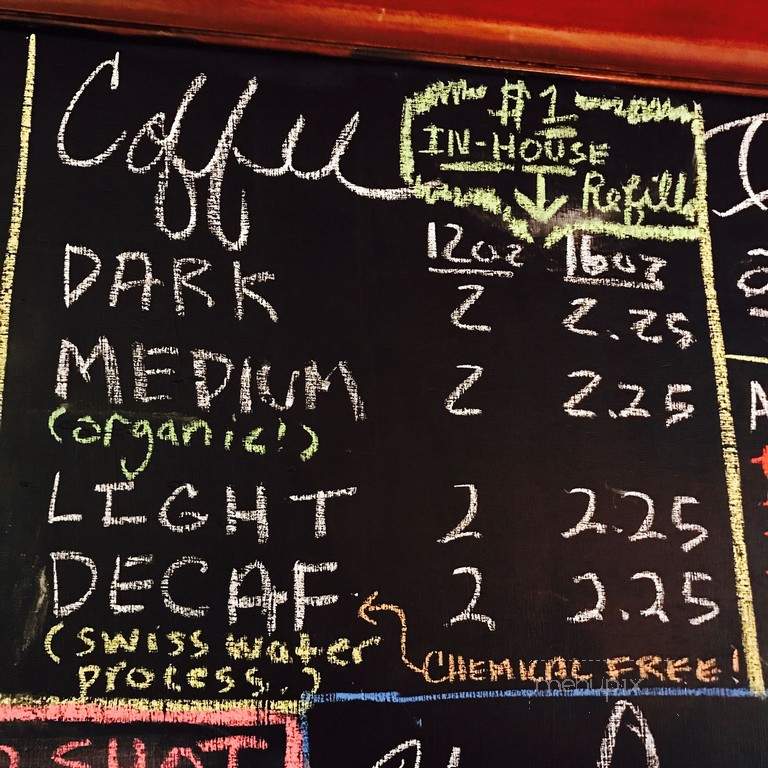 Coffee
$1
IN-HOUSE
Refill
12oz 16oz
DARK 2 2.25
MEDIUM 2 2.25
(organic!)
LIGHT 2 2.25
DECAF 2 2.25
(swiss water
process.)
CHEMICAL FREE!
menupix
SHOT